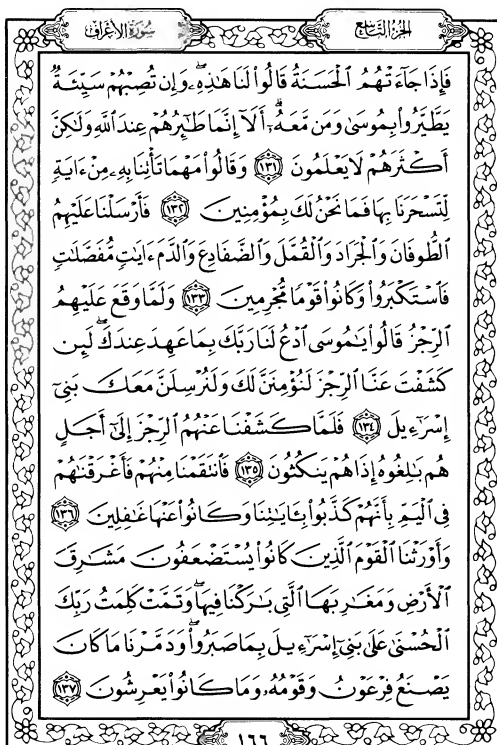 سُورَةُ الأَعْرَافِ
الجُزْءُ التَّاسِعُ
فَإِذَا جَآءَتْهُمُ ٱلْحَسَنَةُ قَالُوا۟ لَنَا هَٰذِهِۦ ۖ وَإِن تُصِبْهُمْ سَيِّئَةٌ
يَطَّيَّرُوا۟ بِمُوسَىٰ وَمَن مَّعَهُۥٓ ۗ أَلَآ إِنَّمَا طَٰٓئِرُهُمْ عِندَ ٱللَّهِ وَلَٰكِنَّ
أَكْثَرَهُمْ لَا يَعْلَمُونَ ١٣١ وَقَالُوا۟ مَهْمَا تَأْتِنَا بِهِۦ مِنْ ءَايَةٍ
لِّتَسْحَرَنَا بِهَا فَمَا نَحْنُ لَكَ بِمُؤْمِنِينَ ١٣٢ فَأَرْسَلْنَا عَلَيْهِمُ
ٱلطُّوفَانَ وَٱلْجَرَادَ وَٱلْقُمَّلَ وَٱلضَّفَادِعَ وَٱلدَّمَ ءَايَٰتٍ مُّفَصَّلَٰتٍ
فَٱسْتَكْبَرُوا۟ وَكَانُوا۟ قَوْمًا مُّجْرِمِينَ ١٣٣ وَلَمَّا وَقَعَ عَلَيْهِمُ
ٱلرِّجْزُ قَالُوا۟ يَٰمُوسَى ٱدْعُ لَنَا رَبَّكَ بِمَا عَهِدَ عِندَكَ ۖ لَئِن
كَشَفْتَ عَنَّا ٱلرِّجْزَ لَنُؤْمِنَنَّ لَكَ وَلَنُرْسِلَنَّ مَعَكَ بَنِىٓ
إِسْرَٰٓءِيلَ ١٣٤ فَلَمَّا كَشَفْنَا عَنْهُمُ ٱلرِّجْزَ إِلَىٰٓ أَجَلٍ
هُم بَٰلِغُوهُ إِذَا هُمْ يَنكُثُونَ ١٣٥ فَٱنتَقَمْنَا مِنْهُمْ فَأَغْرَقْنَٰهُمْ
فِى ٱلْيَمِّ بِأَنَّهُمْ كَذَّبُوا۟ بِـَٔايَٰتِنَا وَكَانُوا۟ عَنْهَا غَٰفِلِينَ ١٣٦
وَأَوْرَثْنَا ٱلْقَوْمَ ٱلَّذِينَ كَانُوا۟ يُسْتَضْعَفُونَ مَشَٰرِقَ
ٱلْأَرْضِ وَمَغَٰرِبَهَا ٱلَّتِى بَٰرَكْنَا فِيهَا ۖ وَتَمَّتْ كَلِمَتُ رَبِّكَ
ٱلْحُسْنَىٰ عَلَىٰ بَنِىٓ إِسْرَٰٓءِيلَ بِمَا صَبَرُوا۟ ۖ وَدَمَّرْنَا مَا كَانَ
يَصْنَعُ فِرْعَوْنُ وَقَوْمُهُۥ وَمَا كَانُوا۟ يَعْرِشُونَ ١٣٧
١٦٦